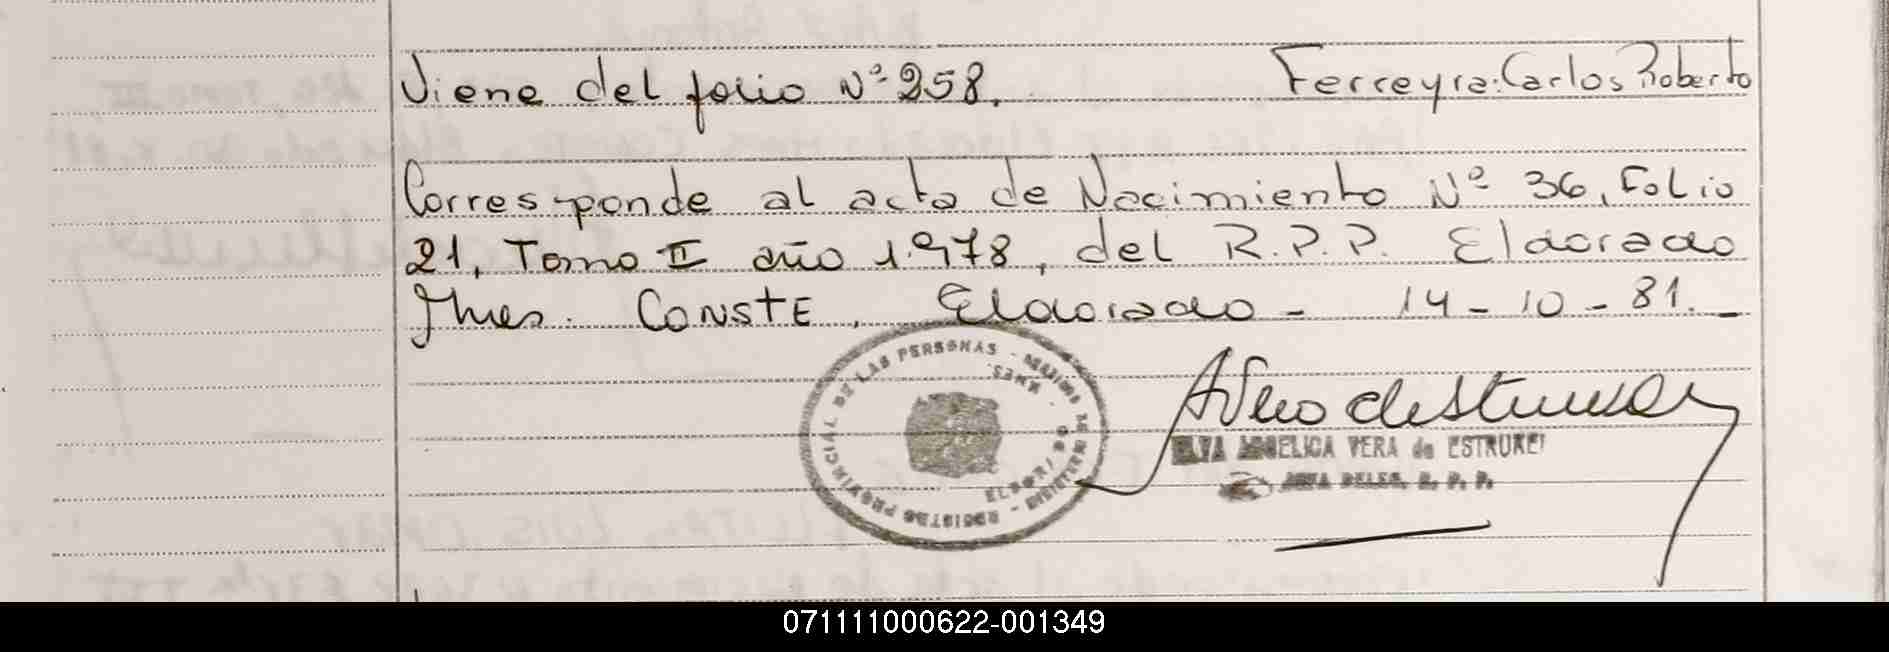 Viene del folio Nº 258. Ferreyra: Carlos Roberto
Corresponde al acta de Nacimiento Nº 36, Folio
21, Tomo II año 1.978, del R.P.P. Eldorado
Mnes. CONSTE, Eldorado - 14-10-81.-
REGISTRO PROVINCIAL DE LAS PERSONAS -
MNES.
ANGELICA VERA de ESTRUKEL
R. P. P.
071111000622-001349